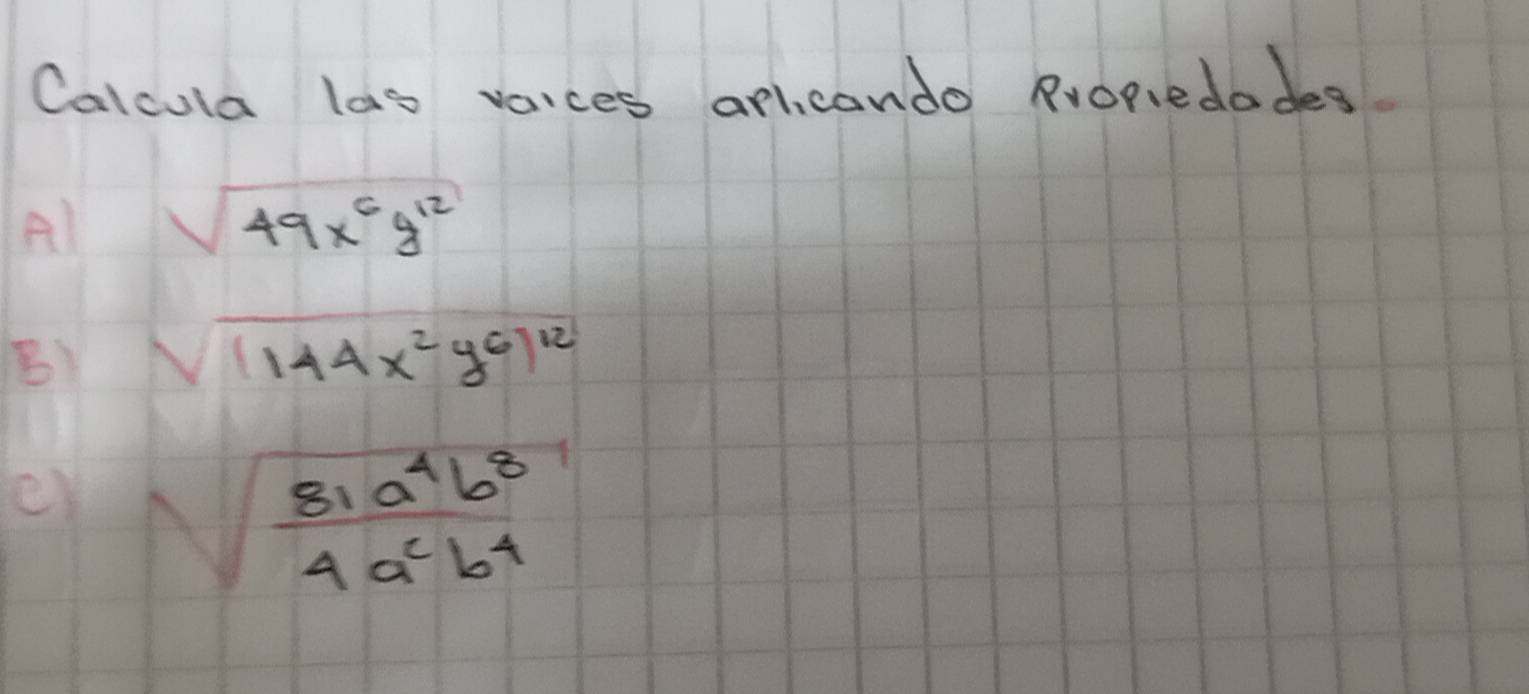 Calcula las raices aplicando Propiedades.
A) √49x⁶y¹²
B) √(144x²y⁶)¹²
C) √81a⁴b⁸
4a⁶b⁴